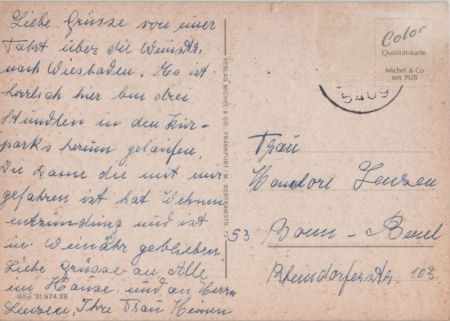 Liebe Grüsse von einer
Fahrt über die Weinstr.
nach Wiesbaden. Es ist
herrlich hier bin drei
Stunden in den Kur-
parks herum gelaufen,
Die Dame die mit mir
gefahren ist hat Wehnen
entzündung und ist
in Weinähr geblieben.
Liebe Grüsse an Alle
im Hause und an Herrn
Lenzen, Ihre Frau
31.974.38
VERLAG MICHEL & CO., FRANKFURT/M., BERTRAMSTR.
Color
Qualitätskarte
Michel & Co
seit 1928
5409
Frau
Lenzen
53 Bonn - Beuel
Rhensdorferstr. 103